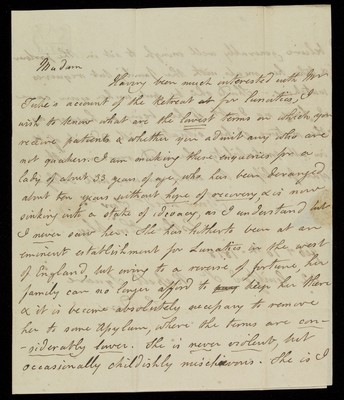 Madam
Having been much interested with Mr
Tuke's account of the Retreat for Lunatics, I
wish to know what are the lowest terms on which you
receive patients & whether you admit any who are
not quakers. I am making these enquiries for a
lady of about 33 years of age, who has been deranged
about ten years without hope of recovery & is now
sinking into a state of idiocy, as I understand but
I never saw her. She has hitherto been at an
eminent establishment for Lunatics in the west
of England, but owing to a reverse of fortune her
family can no longer afford to keep her there
& it is become absolutely necessary to remove
her to some Asylum, where the terms are con-
-siderably lower. She is never violent, but
occasionally childishly mischievous. She is I